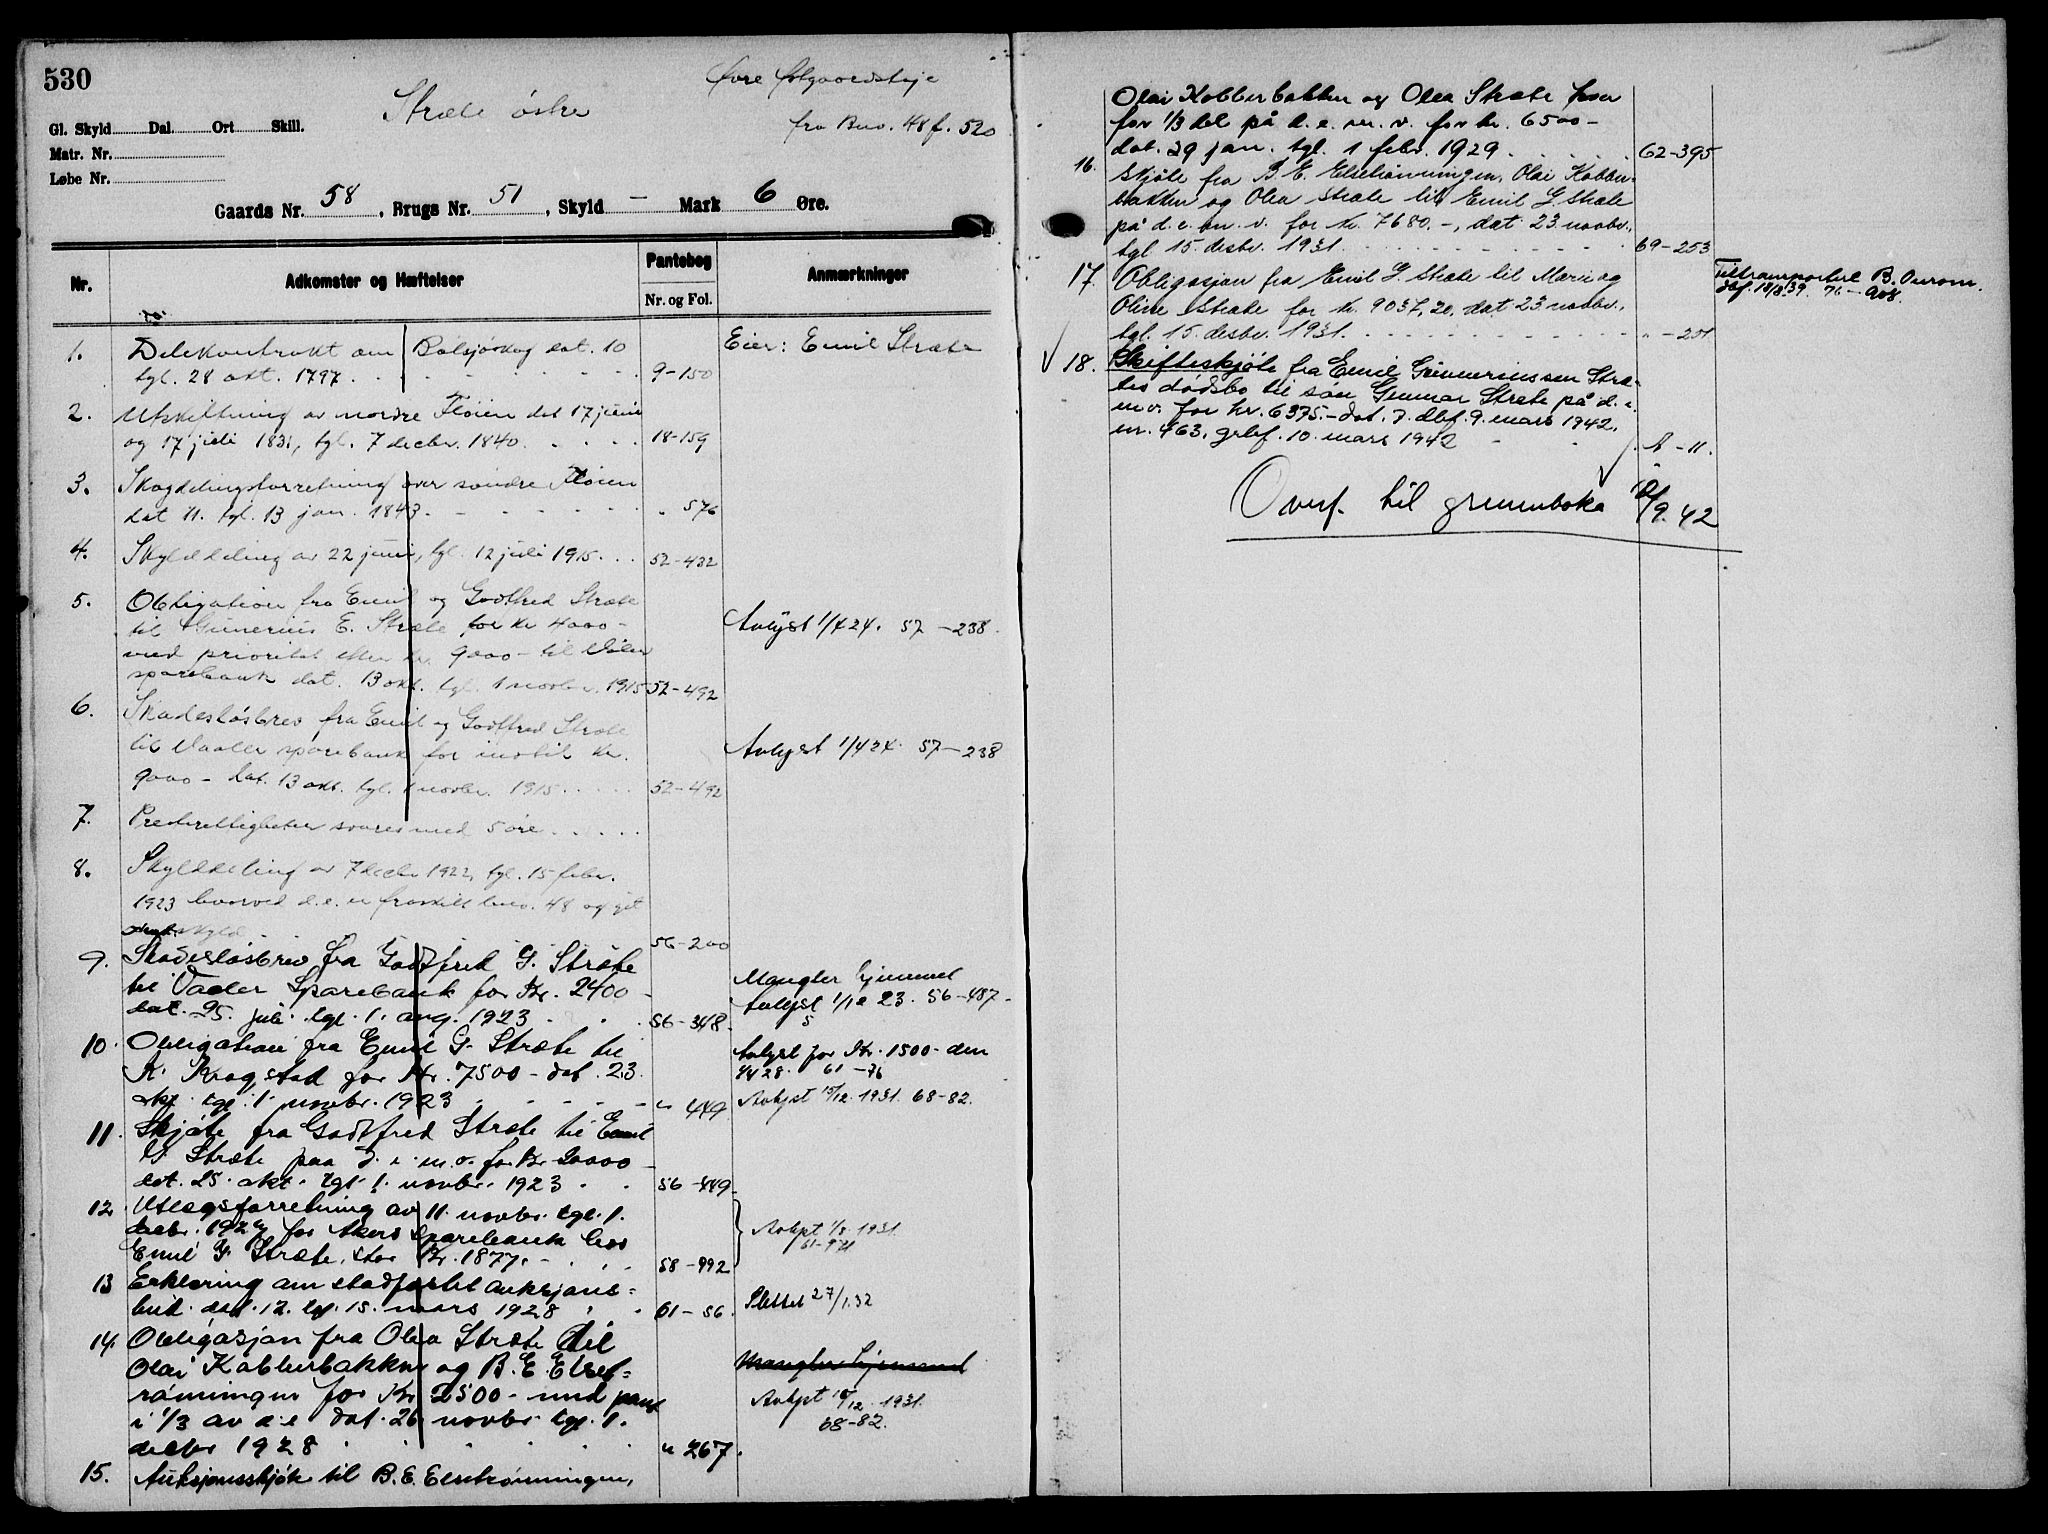 530
Stræte østre
fra Bno. 48 f. 520
Gl. Skyld Dal. Ort Skill.
Matr. Nr.
Løbe Nr.
Gaards Nr. 58, Brugs Nr. 51, Skyld — Mark 6 Øre.
Nr. Adkomster og Hæftelser Pantebog Anmærkninger
Nr. og Fol.
1. Delekontrakt om Bølsjøskog dat. 10 Eier: Emil Stræte
tgl. 28 okt. 1797. 9-150
2. Utskiftning av nordre Fløien dat 17 juni
og 17 juli 1831, tgl. 7 decbr. 1840. 18-159
3. Skogdelingsforretning over søndre Fløien
dat 11. tgl. 13 jan. 1843. " 576
4. Skylddeling av 22 juni, tgl. 12 juli 1915. 52-432
5. Obligation fra Emil og Godtfred Stræte
til Gunerius E. Stræte for kr 4000- Avlyst 1/4 24. 57-238.
med prioritet efter kr. 9000- til Våler
sparebank dat. 13 okt. tgl. 1 novbr. 1915 52-492
6. Skadesløsbrev fra Emil og Godtfred Stræte
til Vaaler sparebank for indtil kr. Avlyst 1/4 24. 57-238
9000- dat. 13 okt. tgl. 1 novbr. 1915. 52-492
7. Presterettigheter svares med 5 øre.
8. Skylddeling av 7 decbr 1922, tgl. 15 febr.
1923 hvorved d.e. er fraskilt bno. 48 og git
skyld. 56-200
9. Skadesløsbrev fra Godtfred G. Stræte
til Vaaler Sparebank for Kr. 2400- Mangler hjemmel
dat. 25. juli tgl. 1. aug. 1923. 56-348. Avlyst 1/12 23. 56-487-
10. Obligation fra Emil G. Stræte til Avlyst for Kr. 1500- den
K. Krogstad for Kr. 7500- dat. 23. 4/4 28. 61-76
okt. tgl. 1. novbr. 1923 " 449 Avlyst 15/12. 1931. 68-82.
11. Skjøte fra Godtfred Stræte til Emil
G. Stræte paa d. e. m. v. for Kr 20000-
dat. 25. okt. tgl. 1. novbr. 1923 56-449.
12. Utlægsforretning av 11. novbr. tgl. 1.
decbr. 1924 for Akers Sparebank hos Avlyst 1/8. 1931.
Emil G. Stræte, stor Kr. 1877.- 58-992 61-921
13 Erklæring om stadfæstet auksjons=
bud. dat. 12. tgl. 15. mars 1928 61-56. Slettet 27/1.32
14. Obligasjon fra Olea Stræte til
Olai Kobberbakken og B. E. Elset= Mangler hjemmel
rønningen for Kr 2500- med pant Avlyst 15/12. 1931.
i 1/3 av d.e dat. 26 novbr. tgl. 1. 68-82.
decbr 1928 " 267.
15. Auksjonsskjøte til B. E. Elsetrønningen,
Olai Kobberbakken og Olea Stræte hver
for 1/3 del på d. e. m. v. for kr. 6500-
dat. 29 jan. tgl. 1 febr. 1929. 62-395
16. Skjøte fra B. E. Elsetrønningen, Olai Kobber=
bakken og Olea Stræte til Emil G Stræte
på d. e. m. v. for kr. 7680.-, dat 23. novbr.,
tgl 15. desbr. 1931. 69-253
17. Obligasjon fra Emil G. Stræte til Marie og Tiltransportert B.
Oline Stræte for kr. 9037,20, dat 23 novbr., dbf. 18/8.39. 76-908.
tgl. 15. desbr. 1931. "-201
18. Skifteskjøte fra Emil Guneriussen Stræ=
tes dødsbo til søn Gunnar Stræte på d. e.
m v. for kr. 6375.- dat. 7. dbf. 9. mars 1942.
nr. 463, grbf. 10. mars 1942 A-11.
Overf. til grunnboka 12/9.42